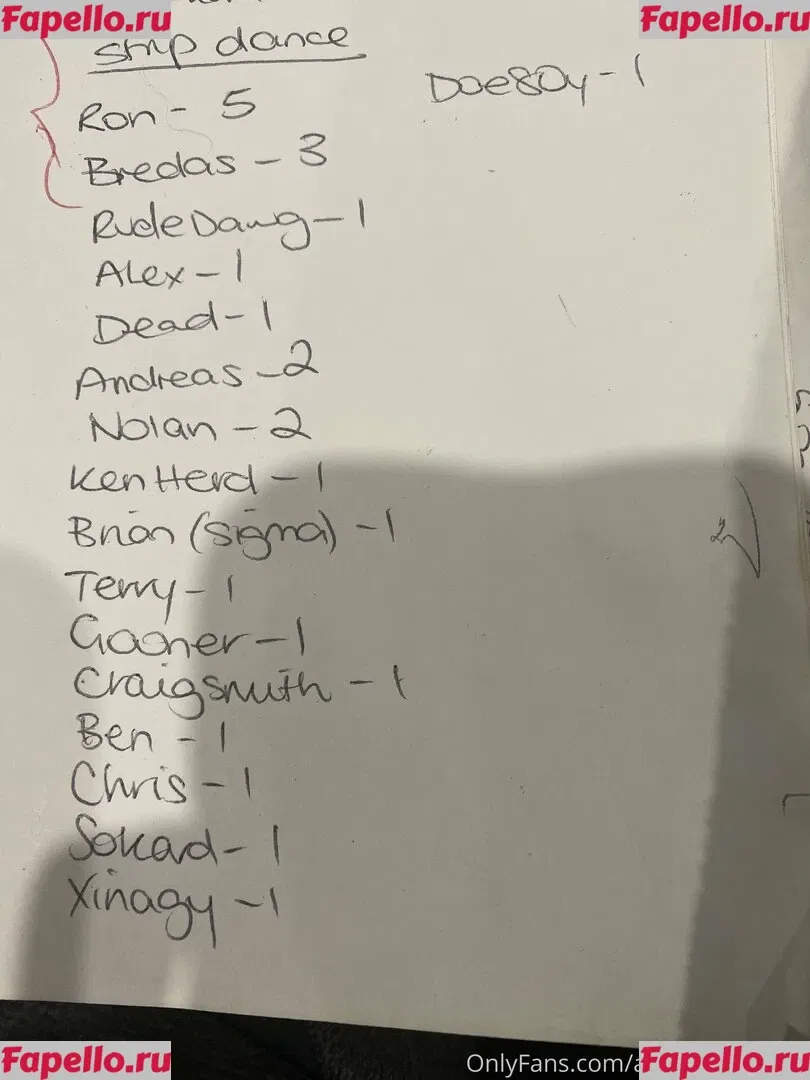 Fapello.ru
Fapello.ru
strip dance
Doe80y - 1
Ron - 5
Bredas - 3
RudeDawg - 1
Alex - 1
Dead - 1
Andreas - 2
Nolan - 2
Ken Herd - 1
Brian (sigma) - 1
Terry - 1
Gagner - 1
Craigsmith - 1
Ben - 1
Chris - 1
Sokad - 1
Xinagy - 1
2
Fapello.ru
OnlyFans.com/a
Fapello.ru